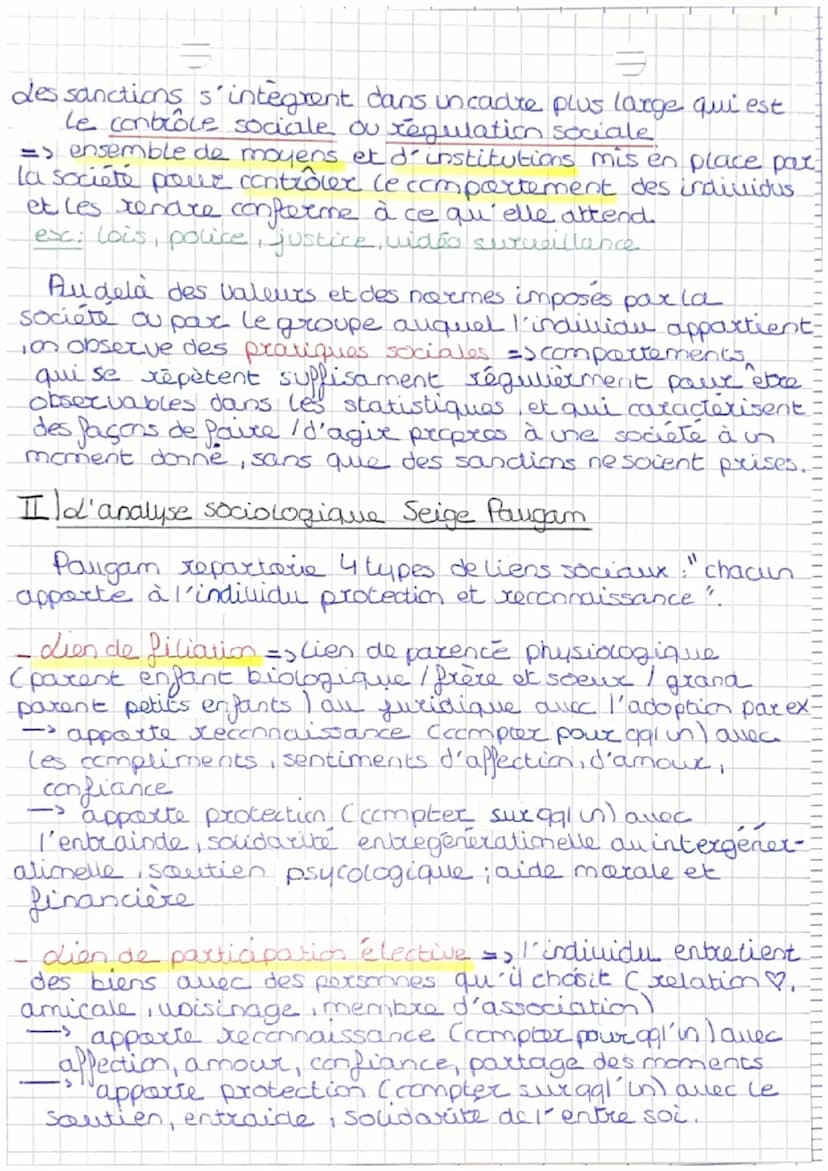 des sanctions s'intègrent dans un cadre plus large qui est
le contrôle sociale ou régulation sociale
=> ensemble de moyens et d'institutions mis en place par
la société pour contrôler le comportement des individus
et les rendre conforme à ce qu'elle attend.
ex: lois, police, justice, vidéo surveillance
Au delà des valeurs et des normes imposés par la
société ou par le groupe auquel l'individu appartient
, on observe des pratiques sociales => comportements
qui se répètent suffisament régulièrment pour être
observables dans les statistiques, et qui caractérisent
des façons de faire / d'agir propres à une société à un
moment donné, sans que des sanctions ne soient prises.
II) L'analyse sociologique Seige Paugam
Paugam repartorie 4 types de liens sociaux : "chacun
apporte à l'individu protection et reconnaissance".
- Lien de filiation => lien de parenté physiologique
(parent enfant biologique / frère et soeur / grand
parent petits enfants) ou juridique avec l'adoption par ex
-> apporte reconnaissance (compter pour qql'un) avec
les compliments, sentiments d'affection, d'amour,
confiance
-> apporte protection (compter sur qql'un) avec
l'entrainde, solidarité entregénérationelle ou intergéner-
ationelle, soutien psycologique ; aide morale et
financière
- Lien de participation élective => l'individu entretient
des biens avec des personnes qu'il choisit (relation ♡,
amicale, voisinage, membre d'association)
-> apporte reconnaissance (compter pour qql'un) avec
affection, amour, confiance, partage des moments
-> apporte protection (compter sur qql'un) avec le
soutien, entraide, solidarité de l'entre soi.